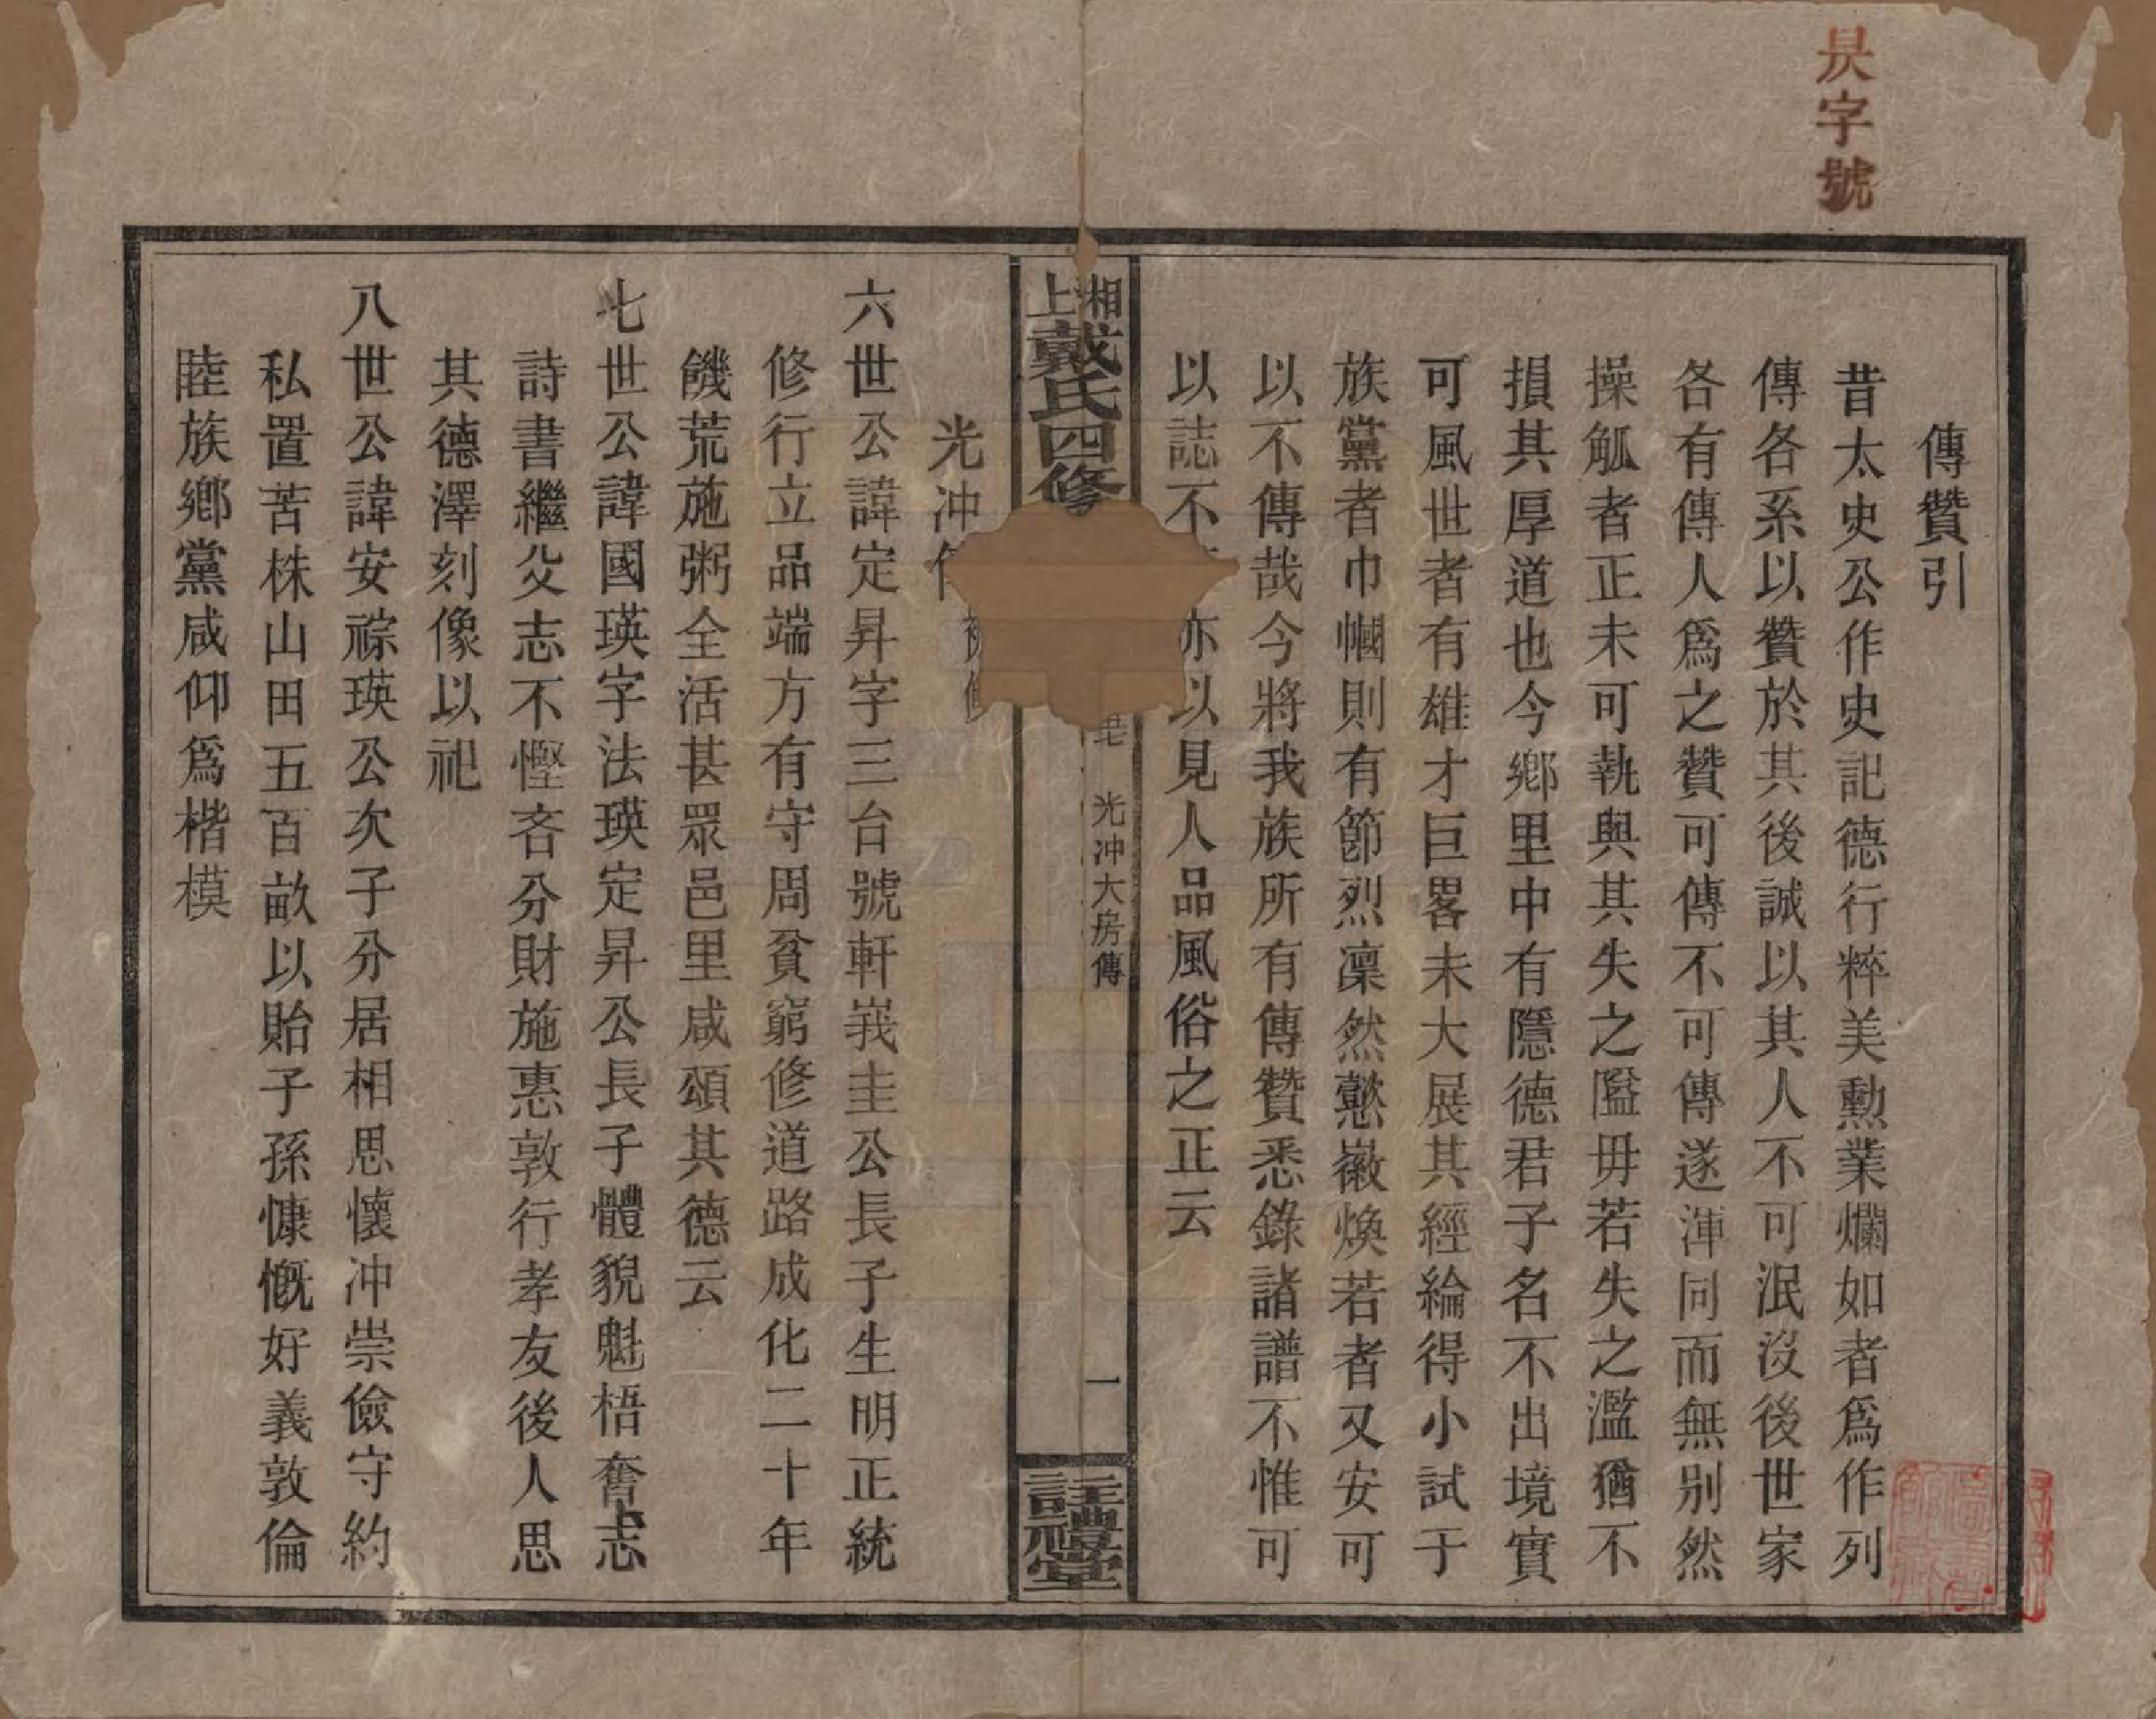 昃字號
傳贊引
昔太史公作史記德行粹美勳業爛如者爲作列
傳各系以贊於其後誠以其人不可泯沒後世家
各有傳人爲之贊可傳不可傳遂渾同而無別然
操觚者正未可執與其失之隘毋若失之濫猶不
損其厚道也今鄉里中有隱德君子名不出境實
可風世者有雄才巨畧未大展其經綸得小試于
族黨者巾幗則有節烈凜然懿徽煥若者又安可
以不傳哉今將我族所有傳贊悉錄諸譜不惟可
以誌不 亦以見人品風俗之正云
湘上戴氏四修
光冲大房傳
一
註禮堂
光冲
六世公諱定昇字三台號軒峩圭公長子生明正統
修行立品端方有守周貧窮修道路成化二十年
饑荒施粥全活甚眾邑里咸頌其德云
七世公諱國瑛字法瑛定昇公長子體貌魁梧奮志
詩書繼父志不慳吝分財施惠敦行孝友後人思
其德澤刻像以祀
八世公諱安祿瑛公次子分居相思懷冲崇儉守約
私置苦株山田五百畝以貽子孫慷慨好義敦倫
睦族鄉黨咸仰爲楷模